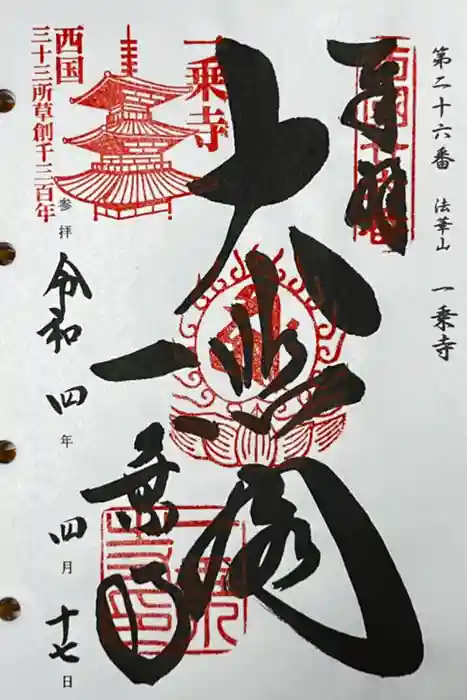 第二十六番 法華山 一乗寺
奉拝
大悲閣
一乗寺
一乗寺
西国
三十三所草創千三百年
参拝 令和四年四月十七日